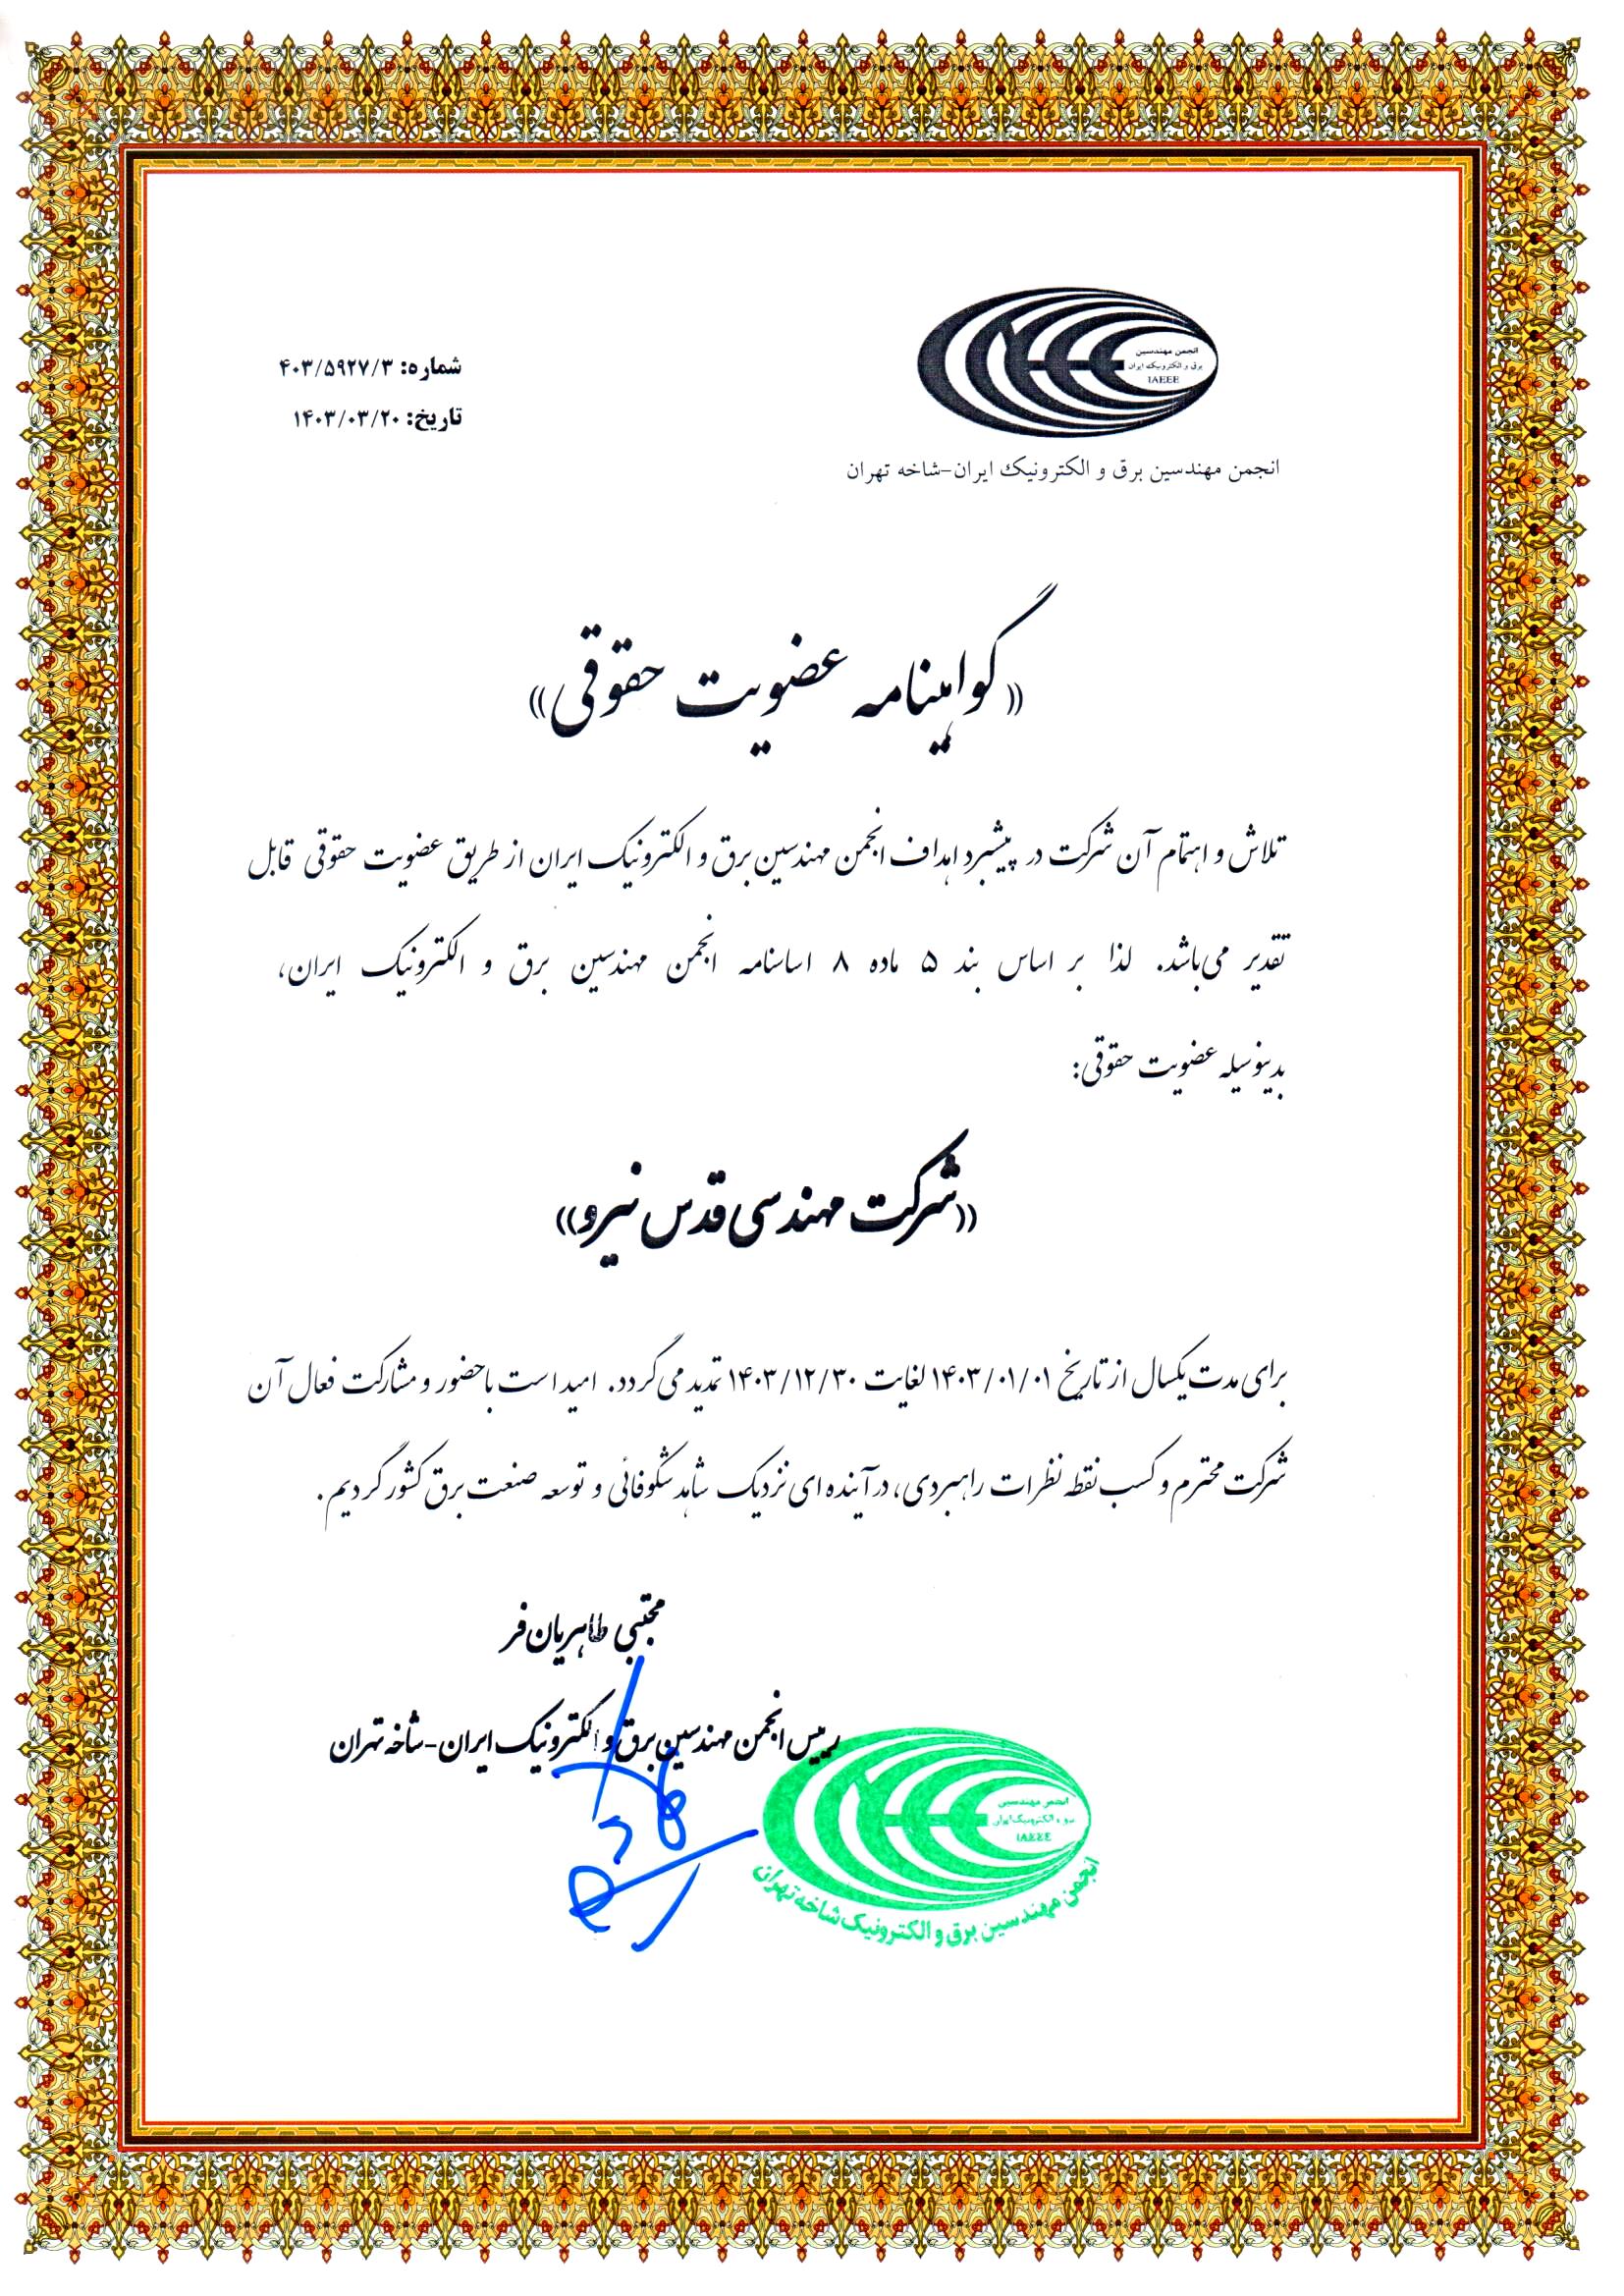 انجمن مهندسین
برق و الکترونیک ایران
IAEEE
انجمن مهندسین برق و الکترونیک ایران-شاخه تهران
شماره: ۴۰۳/۵۹۲۷/۳
تاریخ: ۱۴۰۳/۰۳/۲۰
«گواهینامه عضویت حقوقی»
تلاش و اهتمام آن شرکت در پیشبرد اهداف انجمن مهندسین برق و الکترونیک ایران از طریق عضویت حقوقی قابل
تقدیر می‌باشد. لذا بر اساس بند ۵ ماده ۸ اساسنامه انجمن مهندسین برق و الکترونیک ایران،
بدینوسیله عضویت حقوقی:
«شرکت مهندسی قدس نیرو»
برای مدت یکسال از تاریخ ۱۴۰۳/۰۱/۰۱ لغایت ۱۴۰۳/۱۲/۳۰ تمدید می‌گردد. امید است با حضور و مشارکت فعال آن
شرکت محترم و کسب نقطه نظرات راهبردی، در آینده ای نزدیک شاهد شکوفائی و توسعه صنعت برق کشور گردیم.
مجتبی طاهریان فر
رییس انجمن مهندسین برق و الکترونیک ایران-شاخه تهران
انجمن مهندسین
برق و الکترونیک ایران
IAEEE
انجمن مهندسین برق و الکترونیک شاخه تهران